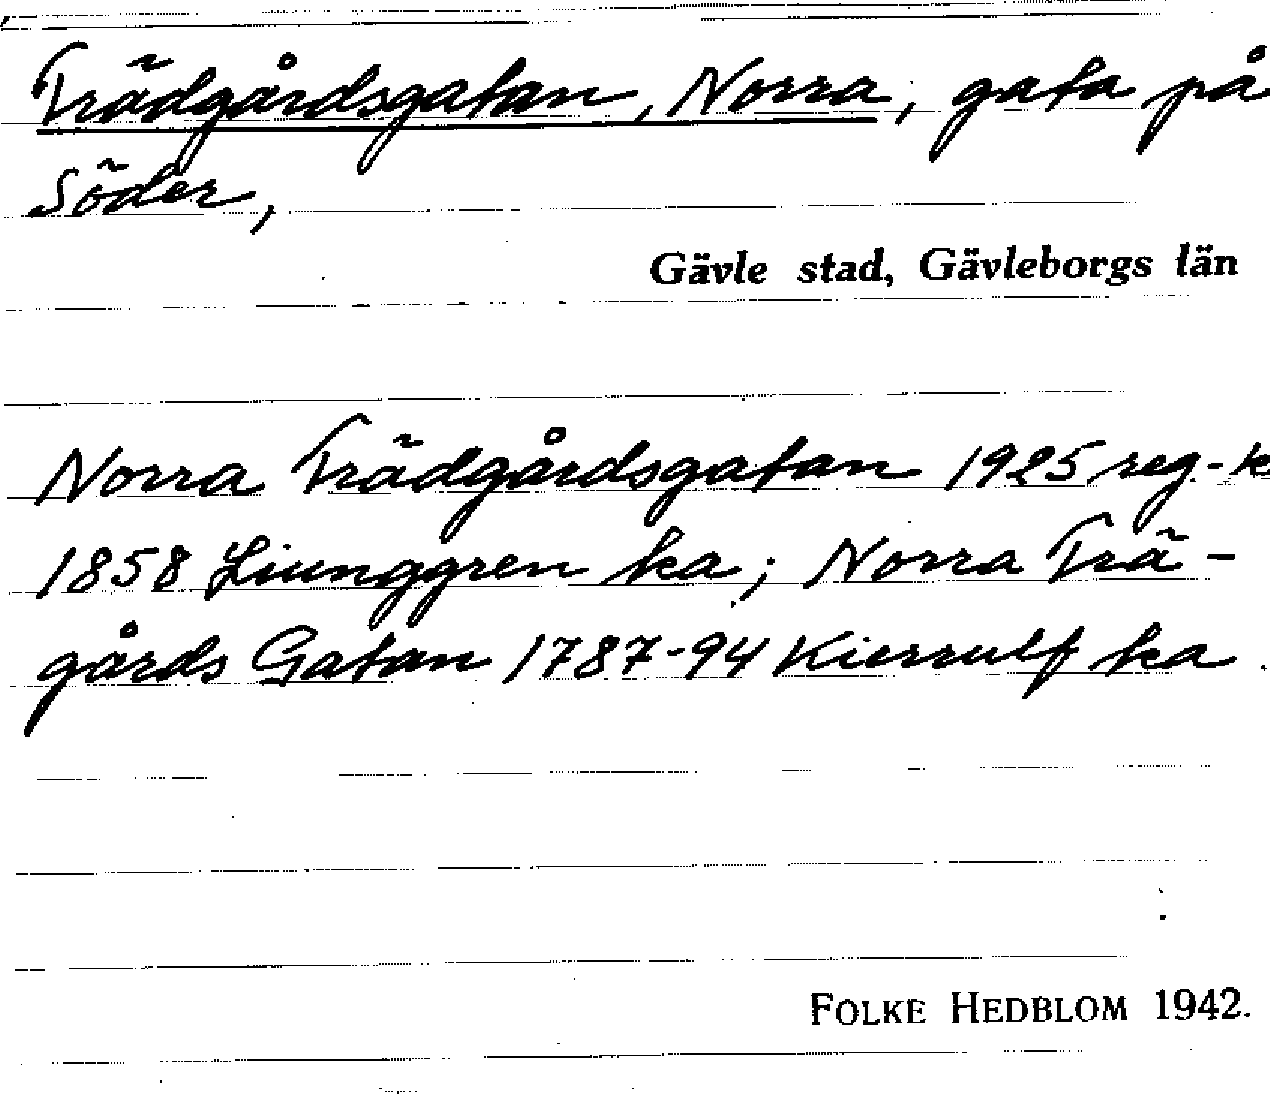 Trädgårdsgatan, Norra, gata på
Söder,
Gävle stad, Gävleborgs län
Norra Trädgårdsgatan 1925 reg.-k
1858 Liunggren ka; Norra Trä-
gårds Gatan 1787-94 Kierrulf ka
FOLKE HEDBLOM 1942.